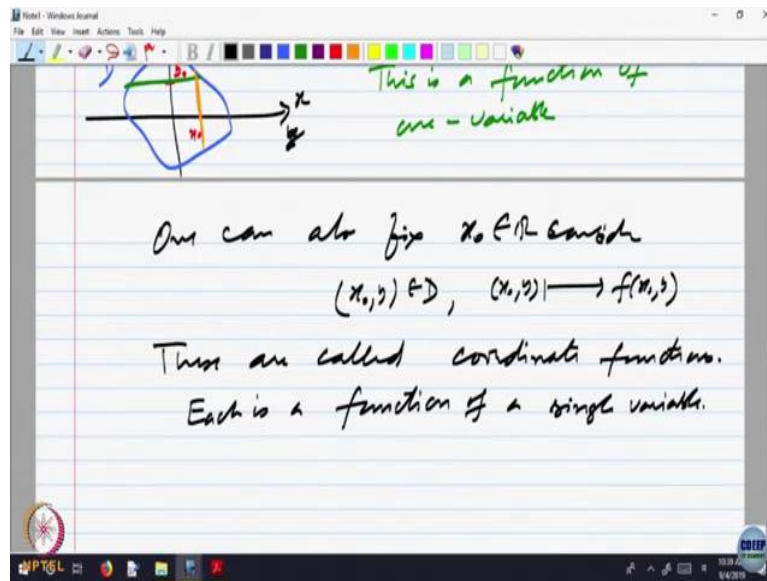 Note1 - Windows Journal
File Edit View Insert Actions Tools Help
D
y₀
x
x₀
This is a function of
one-variable
One can also fix x₀ ∈ ℝ consider
(x₀, y) ∈ D, (x₀, y) ⟼ f(x₀, y)
These are called coordinate functions.
Each is a function of a single variable.
NPTEL
CDEEP
10:39 A
9/4/2019